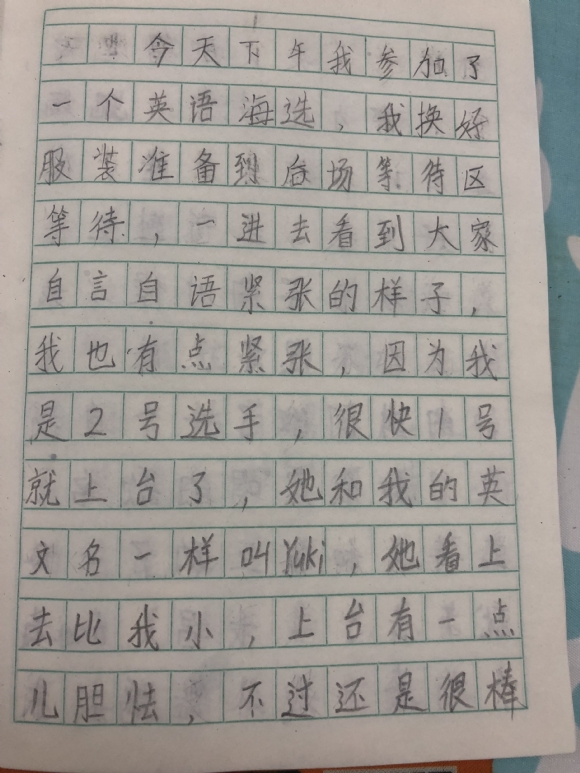 今天下午我参加了
一个英语海选，我换好
服装准备到后场等待区
等待，一进去看到大家
自言自语紧张的样子，
我也有点紧张，因为我
是2号选手，很快1号
就上台了，她和我的英
文名一样叫Yuki，她看上
去比我小，上台有一点
儿胆怯，不过还是很棒